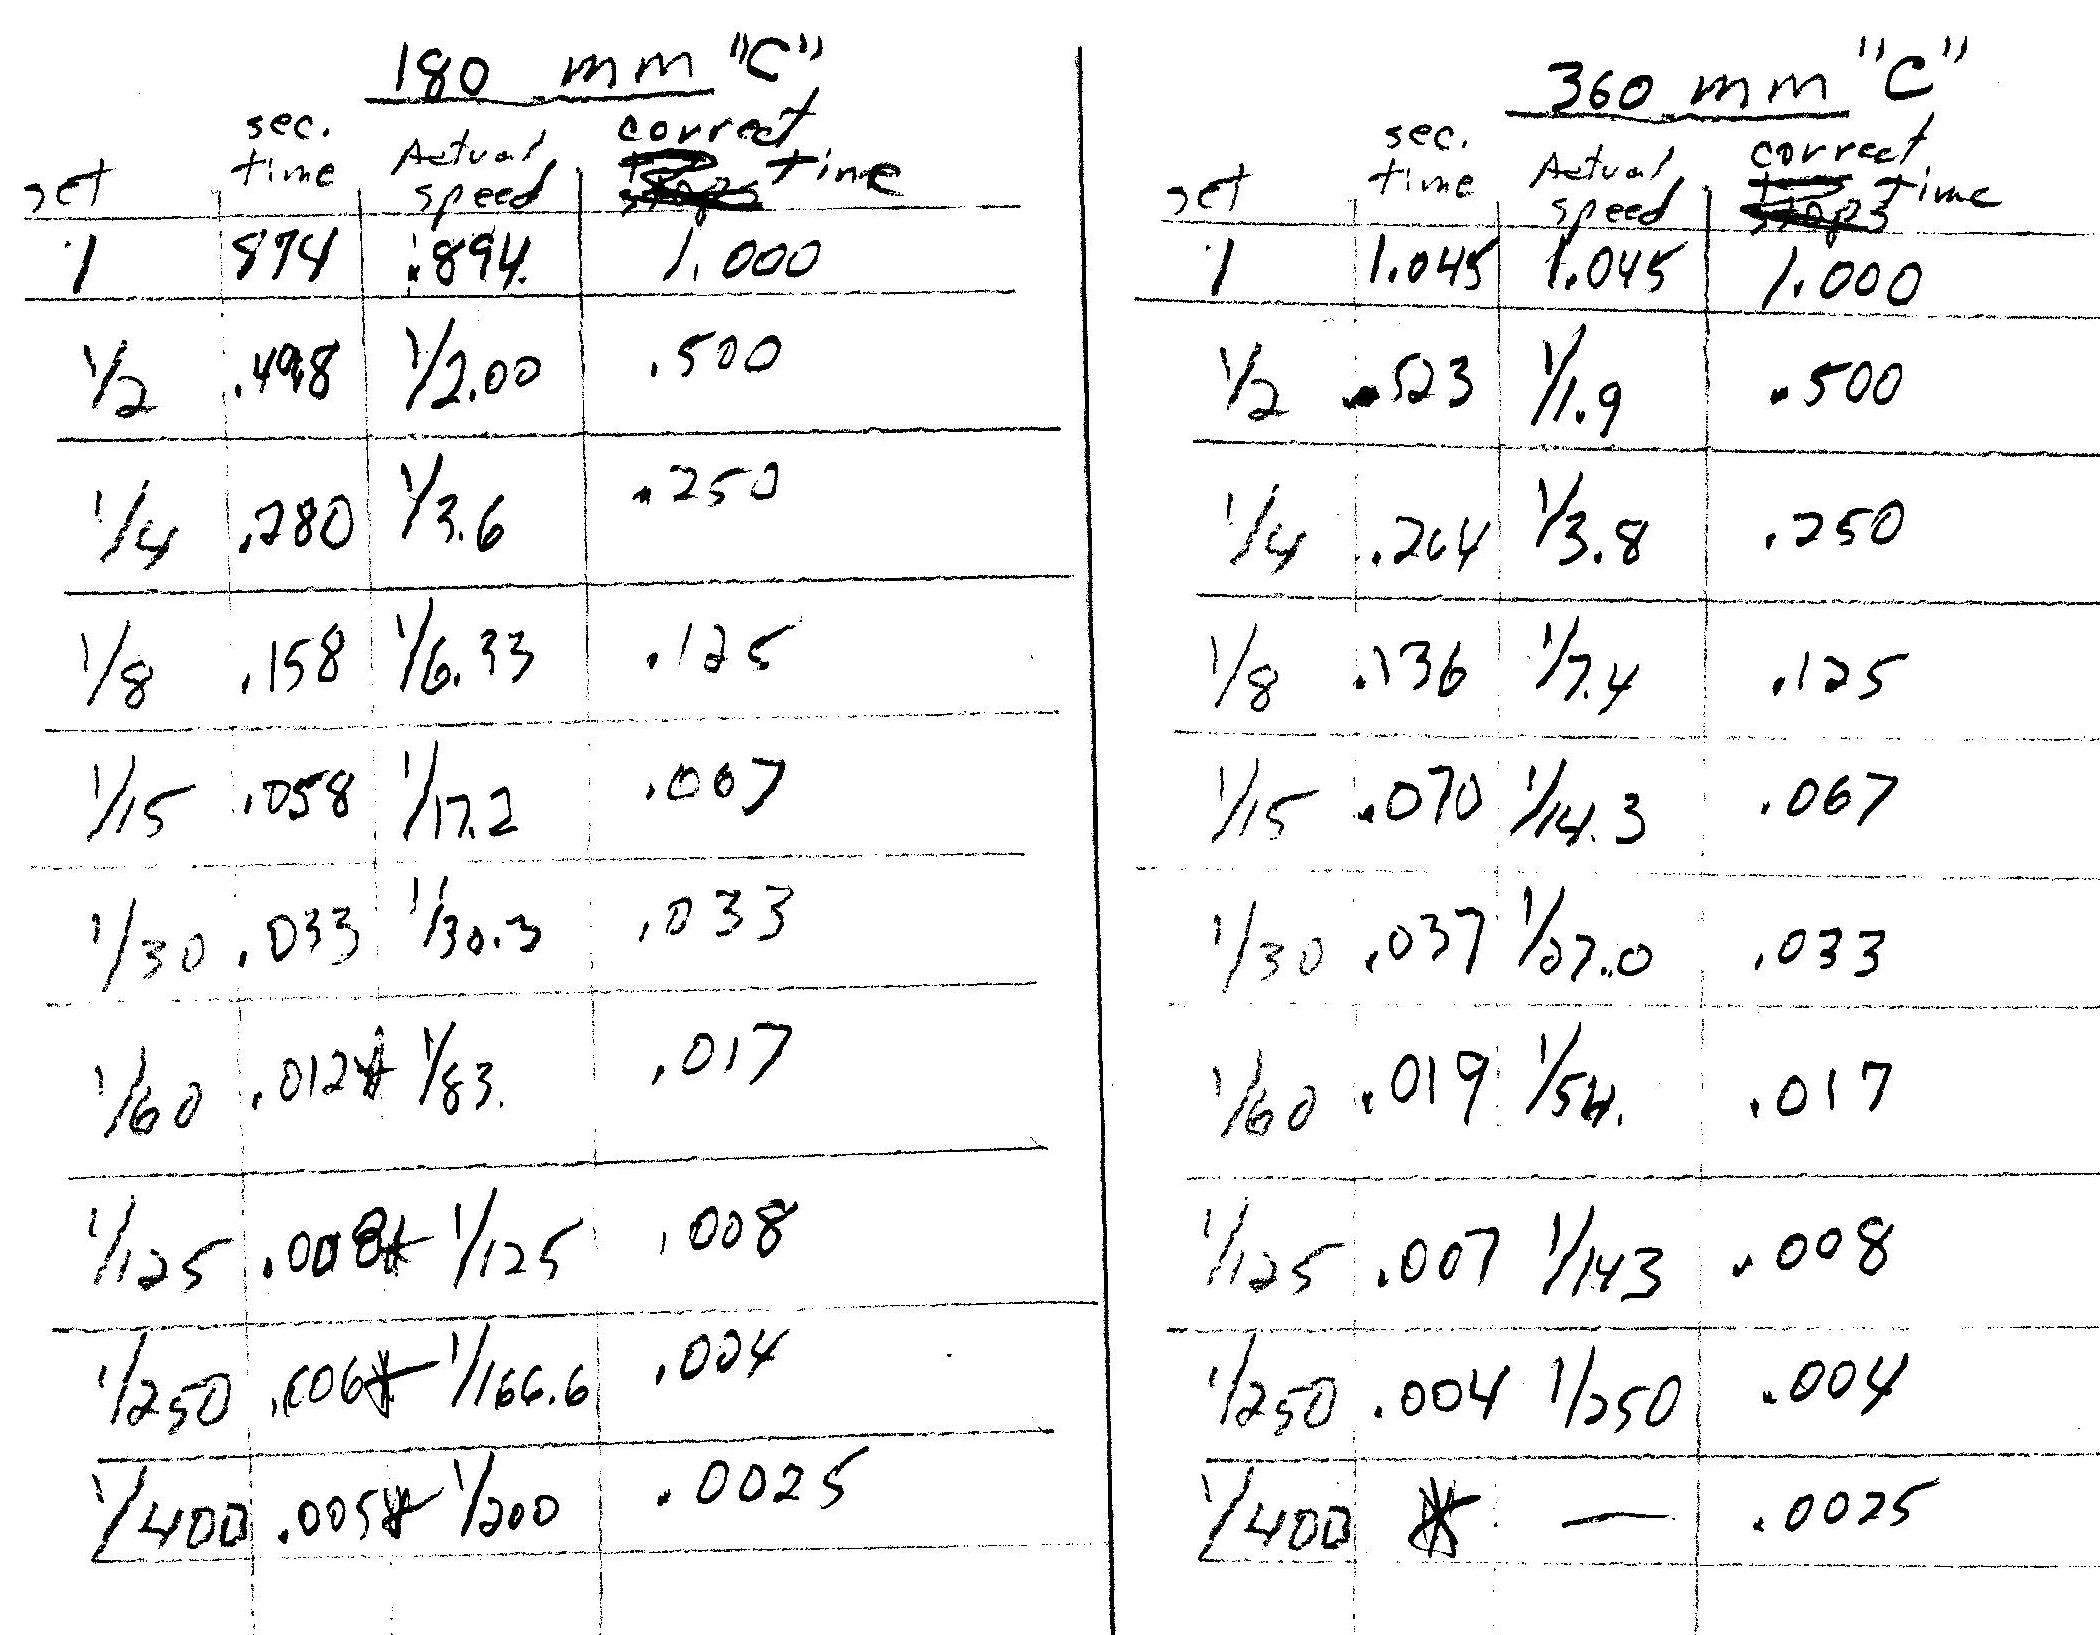 180 mm "C"
set sec. time Actual speed correct time
1 874 .894. 1.000
1/2 .498 1/2.00 .500
1/4 .280 1/3.6 .250
1/8 .158 1/6.33 .125
1/15 .058 1/17.2 .067
1/30 .033 1/30.3 .033
1/60 .012* 1/83. .017
1/125 .008* 1/125 .008
1/250 .006* 1/166.6 .004
1/400 .005* 1/200 .0025
360 mm "C"
set sec. time Actual speed correct time
1 1.045 1.045 1.000
1/2 .523 1/1.9 .500
1/4 .264 1/3.8 .250
1/8 .136 1/7.4 .125
1/15 .070 1/14.3 .067
1/30 .037 1/27.0 .033
1/60 .019 1/54. .017
1/125 .007 1/143 .008
1/250 .004 1/250 .004
1/400 * — .0025